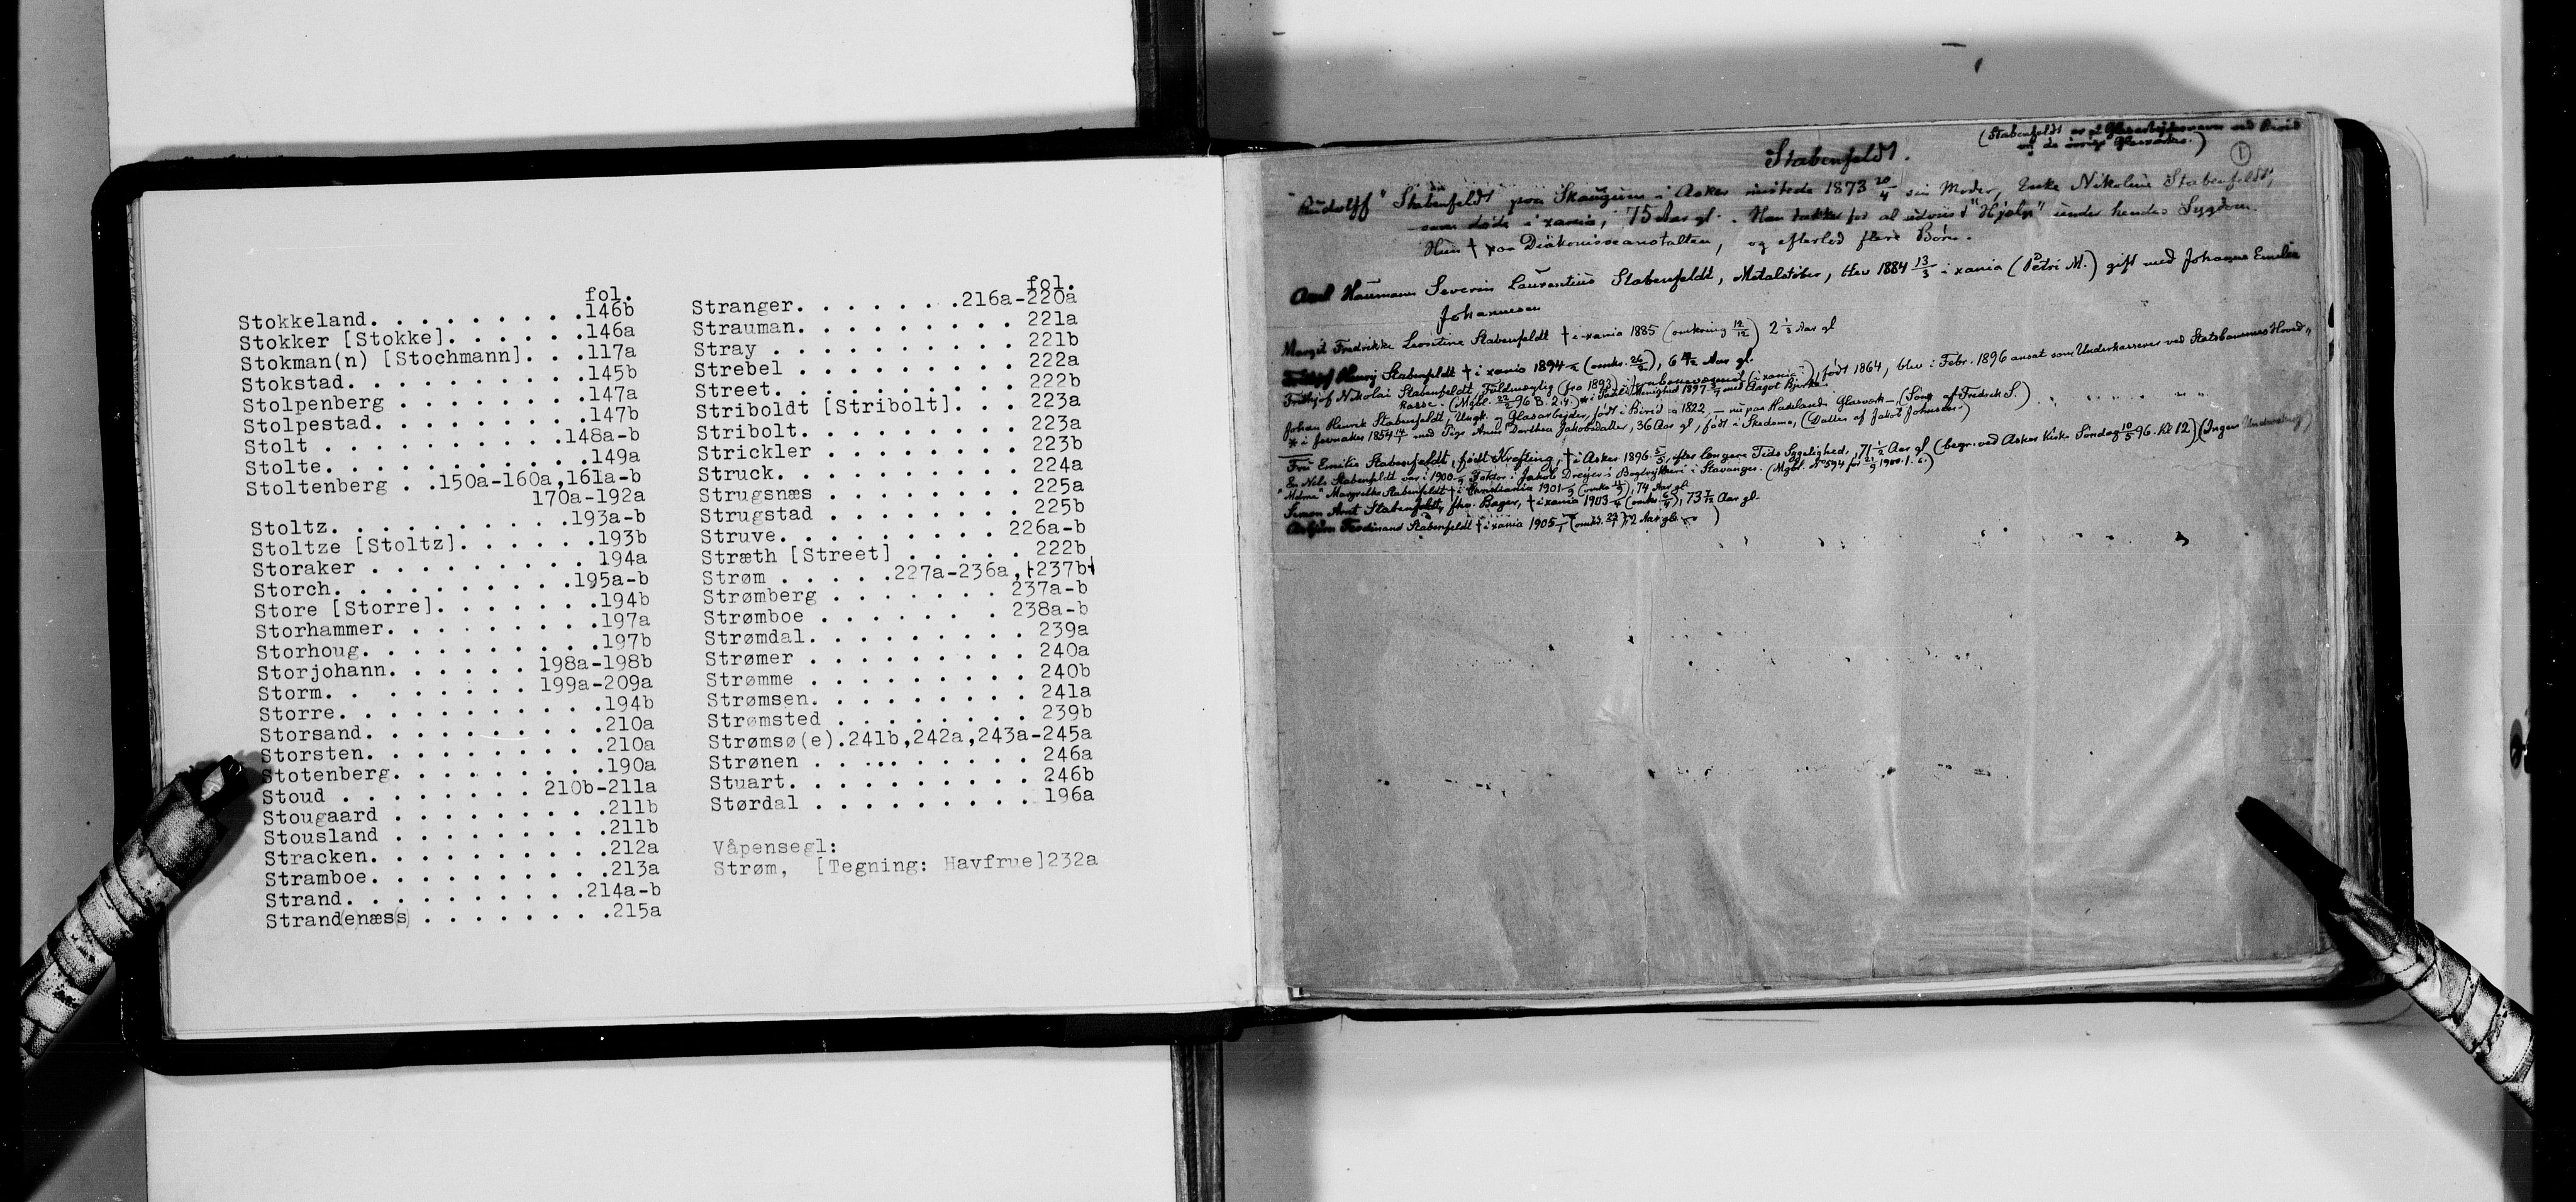 fol.
Stokkeland. . . . . . . . .146b
Stokker [Stokke]. . . . . .146a
Stokman(n) [Stochmann]. . .117a
Stokstad. . . . . . . . . .145b
Stolpenberg . . . . . . . .147a
Stolpestad. . . . . . . . .147b
Stolt . . . . . . . . . .148a-b
Stolte. . . . . . . . . . .149a
Stoltenberg . .150a-160a,161a-b
170a-192a
Stoltz. . . . . . . . . .193a-b
Stoltze [Stoltz]. . . . . .193b
Storaker . . . . . . . . . 194a
Storch. . . . . . . . . .195a-b
Store [Storre]. . . . . . .194b
Storhammer. . . . . . . . .197a
Storhoug. . . . . . . . . .197b
Storjohann. . . . . . 198a-198b
Storm. . . . . . . . 199a-209a
Storre. . . . . . . . . . .194b
Storsand. . . . . . . . . .210a
Storsten. . . . . . . . . .210a
Stotenberg. . . . . . . . .190a
Stoud . . . . . . . . 210b-211a
Stougaard . . . . . . . . .211b
Stousland . . . . . . . . .211b
Stracken. . . . . . . . . .212a
Stramboe. . . . . . . . . .213a
Strand. . . . . . . . . .214a-b
Strand(e)næs(s) . . . . . . . .215a
fol.
Stranger. . . . . . .216a-220a
Strauman. . . . . . . . . 221a
Stray . . . . . . . . . . 221b
Strebel . . . . . . . . . 222a
Street. . . . . . . . . . 222b
Striboldt [Stribolt]. . . 223a
Stribolt. . . . . . . . . 223a
Strickler . . . . . . . . 223b
Struck. . . . . . . . . . 224a
Strugsnæs . . . . . . . . 225a
Strugstad . . . . . . . . 225b
Struve. . . . . . . . . 226a-b
Stræth [Street] . . . . . 222b
Strøm . . . . .227a-236a,+237b+
Strømberg . . . . . . . 237a-b
Strømboe . . . . . . . 238a-b
Strømdal. . . . . . . . . 239a
Strømer . . . . . . . . . 240a
Strømme . . . . . . . . . 240b
Strømsen. . . . . . . . . 241a
Strømsted . . . . . . . . 239b
Strømsø(e).241b,242a,243a-245a
Strønen . . . . . . . . . 246a
Stuart. . . . . . . . . . 246b
Størdal . . . . . . . . . 196a
Våpensegl:
Strøm, [Tegning: Havfrue]232a
(Stabenfeldt er et Glasarbeidernavn ved Birid
og de øvrige Glasværker.)
Stabenfeldt.
1
"Rudolff" Stabenfeldt paa Skaugum i Asker mistede 1873 20/4 sin Moder, Enke Nikoline Stabenfeldt,
som døde i xania, 75 Aar gl. Han takker for al udvist "Hjælp" under hendes Sygdom.
Hun † paa Diakonisseanstalten, og efterlod flere Børn.
Axel Haumann Severin Laurentius Stabenfeldt, Metalstøber, blev 1884 13/3 i xania (Petri M.) gift med Johanne Emilie
Johannesen
Margit Fredrikke Leontine Stabenfeldt † i xania 1885 (omkring 12/12) 2 1/3 Aar gl
Fridtjof Henrij Stabenfeldt † i xania 1894 (omkr. 26/2), 6 1/2 Aar gl.
Frithjof Nikolai Stabenfeldt, Fuldmægtig (fra 1893) (i xania), født 1864, blev i Febr. 1896 ansat som Underkasserer ved Statsbanernes Hoved-
kasse. (Mgbl. 22/2 96 B. 2.4.) i Menighed 1897 med Aagot Bjerke
Johan Henrik Stabenfeldt, Ungk. og Glasarbejder, født i Birid 1822, — nu paa Hadelands Glasværk —, (Søn af Fredrik S.)
* i Jevnaker 1854 med Pige Anne Dorthea Jakobsdatter, 36 Aar gl, født i Skedsmo, (Datter af Jakob Johnsen.)
Fru Emilie Stabenfeldt, født Krafting, † i Asker 1896 5/5, efter længere Tids Sygelighed, 71 1/2 Aar gl (begr. ved Asker Kirke Søndag 10/5 96. Kl 12) (Ingen
En Nels Stabenfeldt var i 1900 Faktor i Jakob Dreyers Bogtrykkeri i Stavanger. (Mgbl. No 594 for 21/9 1900. 1. 6.)
"Mdme" Margrethe Stabenfeldt † i Christiania 1901 (omkr. 11/9), 74 Aar gl.
Simon Arnt Stabenfeldt, fhv. Bager, † i xania 1903 (omkr. 6/4), 73 1/2 Aar gl.
Asbjørn Ferdinand Stabenfeldt † i xania 1905 2 Aar gl.